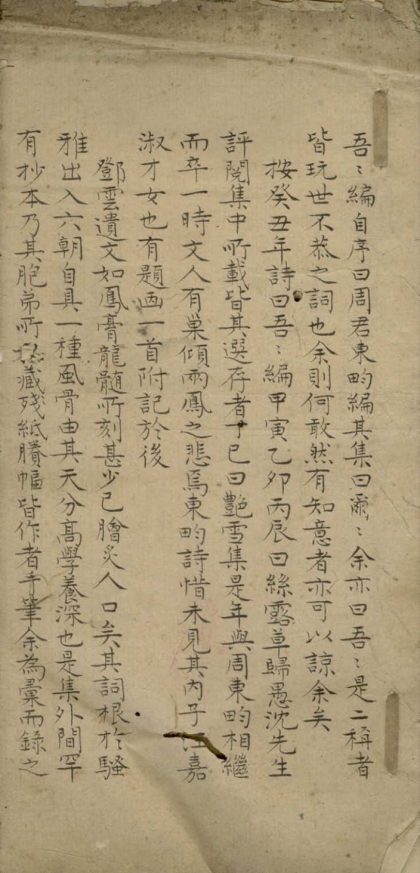 吾〻編自序曰周君東畇編其集曰爾〻余亦曰吾〻是二稱者
皆玩世不恭之詞也余則何敢然有知意者亦可以諒余矣
按癸丑年詩曰吾〻編甲寅乙卯丙辰曰絲露草歸愚沈先生
評閱集中所載皆其選存者丁巳曰艷雪集是年與周東畇相繼
而卒一時文人有巢傾兩鳳之悲焉東畇詩惜未見其內子江嘉
淑才女也有題画一首附記於後
鄧雲遺文如鳳膏龍髓所刻甚少已膾炙人口矣其詞根於騷
雅出入六朝自具一種風骨由其天分高學養深也是集外間罕
有抄本乃其胞弟所私藏殘紙賸幅皆作者手筆余為彙而錄之